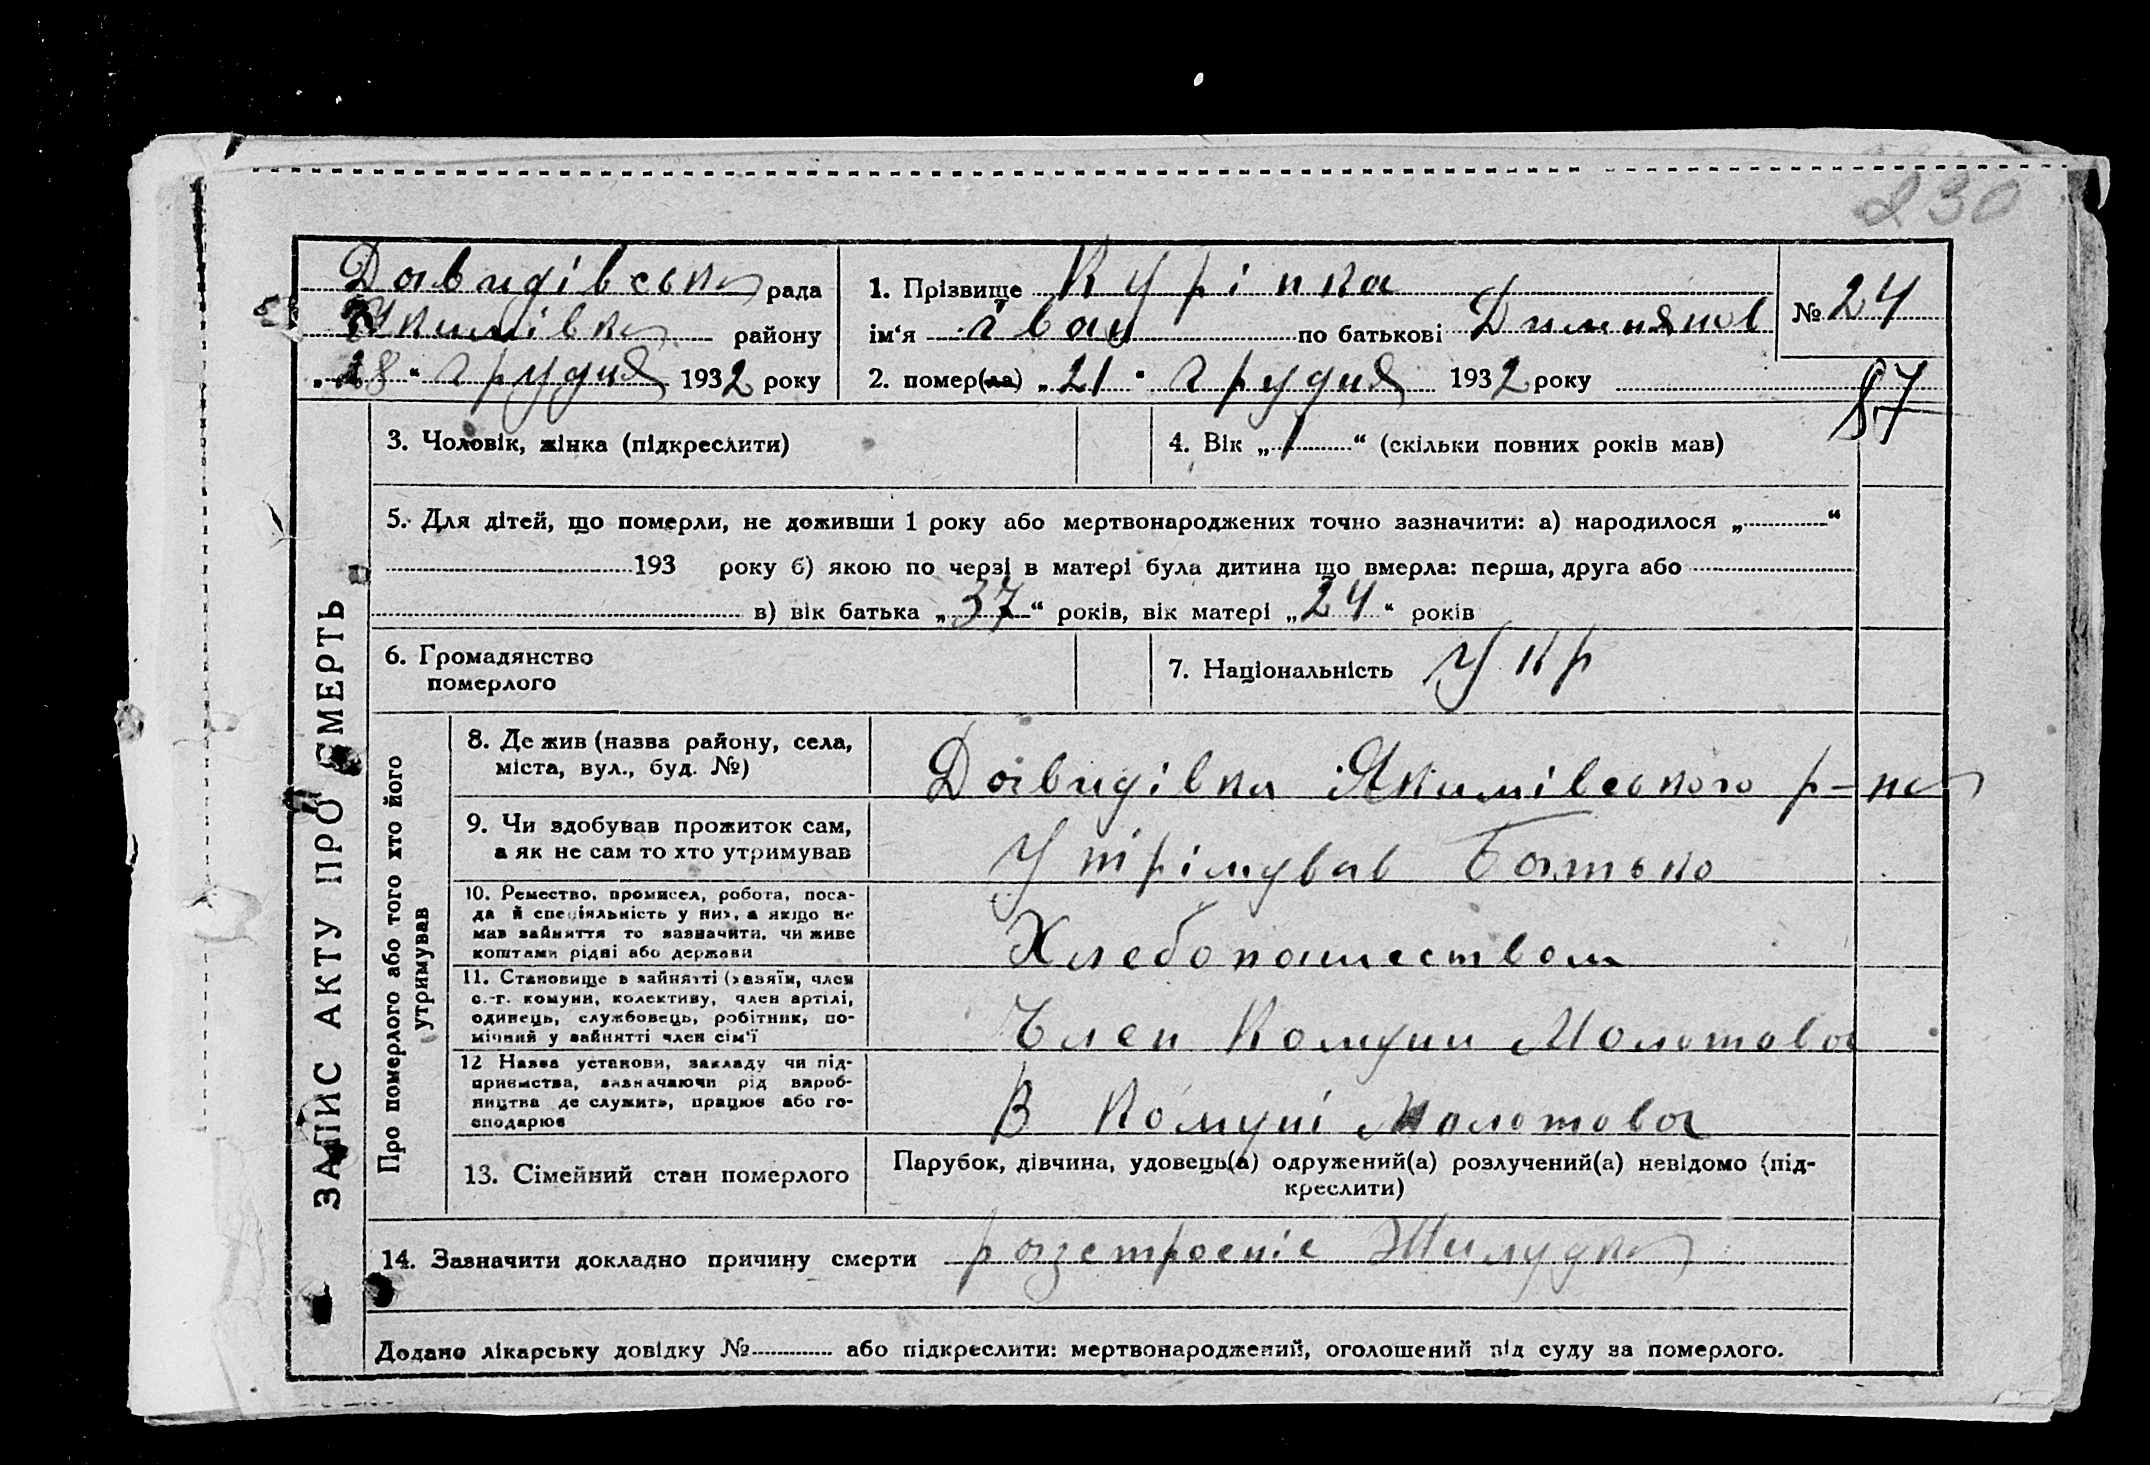 230
Давидівська рада
Якимівка району
„28“ грудня 1932 року
1. Прізвище Курінка
ім‘я Іван по батькові
2. помер(ла) „21“ грудня 1932 року
№ 24
87
ЗАПИС АКТУ ПРО СМЕРТЬ
3. Чоловік, жінка (підкреслити)
4. Вік „1“ (скільки повних років мав)
5. Для дітей, що померли, не доживши 1 року або мертвонароджених точно зазначити: а) народилося „ “
193 року б) якою по черзі в матері була дитина що вмерла: перша, друга або
в) вік батька „37“ років, вік матері „24“ років
6. Громадянство
померлого
7. Національність Укр
Про померлого або того хто його
утримував
8. Де жив (назва району, села,
міста, вул., буд. №)
Давидівка Якимівського р-на
9. Чи здобував прожиток сам,
а як не сам то хто утримував
Утрімував Батько
10. Ремество, промисел, робота, поса-
да й спеціяльність у них, а якщо не
мав зайняття то зазначити, чи живе
коштами рідні або держави
Хлебопашеством
11. Становище в зайнятті (хазяїн, член
с.-г. комуни, колективу, член артілі,
одинець, службовець, робітник, по-
мічний у зайнятті член сім'ї
Член Комуни Молотова
12 Назва установи, закладу чи під-
приємства, зазначаючи рід вироб-
ництва де служить, працює або го-
сподарює
В Комуні Молотова
13. Сімейний стан померлого
Парубок, дівчина, удовець(а) одружений(а) розлучений(а) невідомо (під-
креслити)
14. Зазначити докладно причину смерти разстроеніе Жилудка
Додано лікарську довідку № або підкреслити: мертвонароджений, оголошений від суду за померлого.